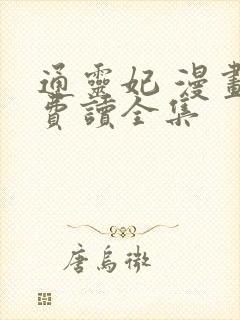 通靈妃 漫畫
費讀全集
唐烏微